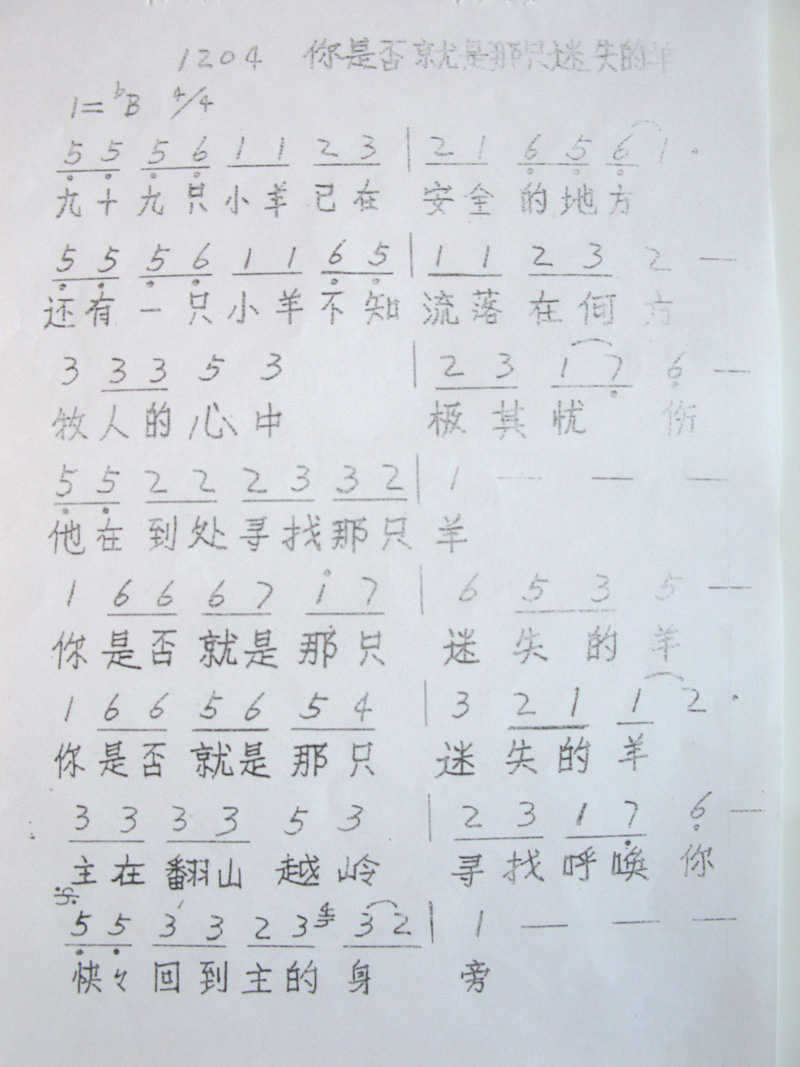 1204 你是否就是那只迷失的羊
1=ᵇB 4/4
5̣ 5̣ 5̣ 6̣ 1 1 2 3 | 2 1 6̣ 5̣ 6̣ 1 ·
九十九只小羊已在 安全的地方
5̣ 5̣ 5̣ 6̣ 1 1 6̣ 5̣ | 1 1 2 3 2 —
还有一只小羊不知 流落在何方
3 3 3 5 3 | 2 3 1 7̣ 6̣ —
牧人的心中 极其忧伤
5̣ 5̣ 2 2 2 3 3 2 | 1 — — —
他在到处寻找那只 羊
1 6 6 6 7 1̇ 7 | 6 5 3 5 —
你是否就是那只 迷失的羊
1 6 6 5 6 5 4 | 3 2 1 1 2 ·
你是否就是那只 迷失的羊
3 3 3 3 5 3 | 2 3 1 7̣ 6̣ —
主在翻山越岭 寻找呼唤你
5̣ 5̣ 3 3 2 3 3 2 | 1 — — —
快々回到主的身 旁